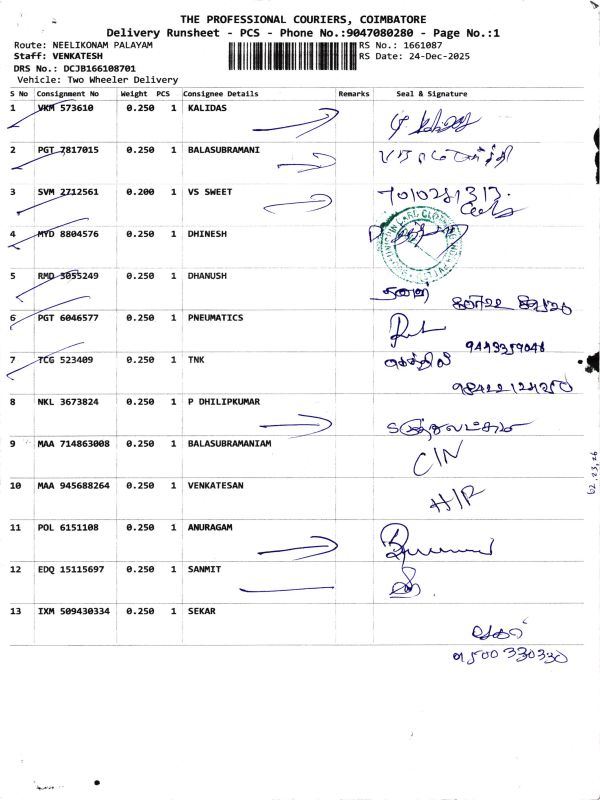 THE PROFESSIONAL COURIERS, COIMBATORE
Delivery Runsheet - PCS - Phone No.:9047080280 - Page No.:1
Route: NEELIKONAM PALAYAM
RS No.: 1661087
Staff: VENKATESH
RS Date: 24-Dec-2025
DRS No.: DCJB166108701
Vehicle: Two Wheeler Delivery
S No Consignment No Weight PCS Consignee Details Remarks Seal & Signature
1 VKM 573610 0.250 1 KALIDAS
2 PGT 7817015 0.250 1 BALASUBRAMANI
3 SVM 2712561 0.200 1 VS SWEET 7010281313.
4 MYD 8804576 0.250 1 DHINESH
5 RMD 3055249 0.250 1 DHANUSH
6 PGT 6046577 0.250 1 PNEUMATICS
7 TCG 523409 0.250 1 TNK
8 NKL 3673824 0.250 1 P DHILIPKUMAR
9 MAA 714863008 0.250 1 BALASUBRAMANIAM C/N
10 MAA 945688264 0.250 1 VENKATESAN
11 POL 6151108 0.250 1 ANURAGAM
12 EDQ 15115697 0.250 1 SANMIT
13 IXM 509430334 0.250 1 SEKAR
சேகர்
91500 330330